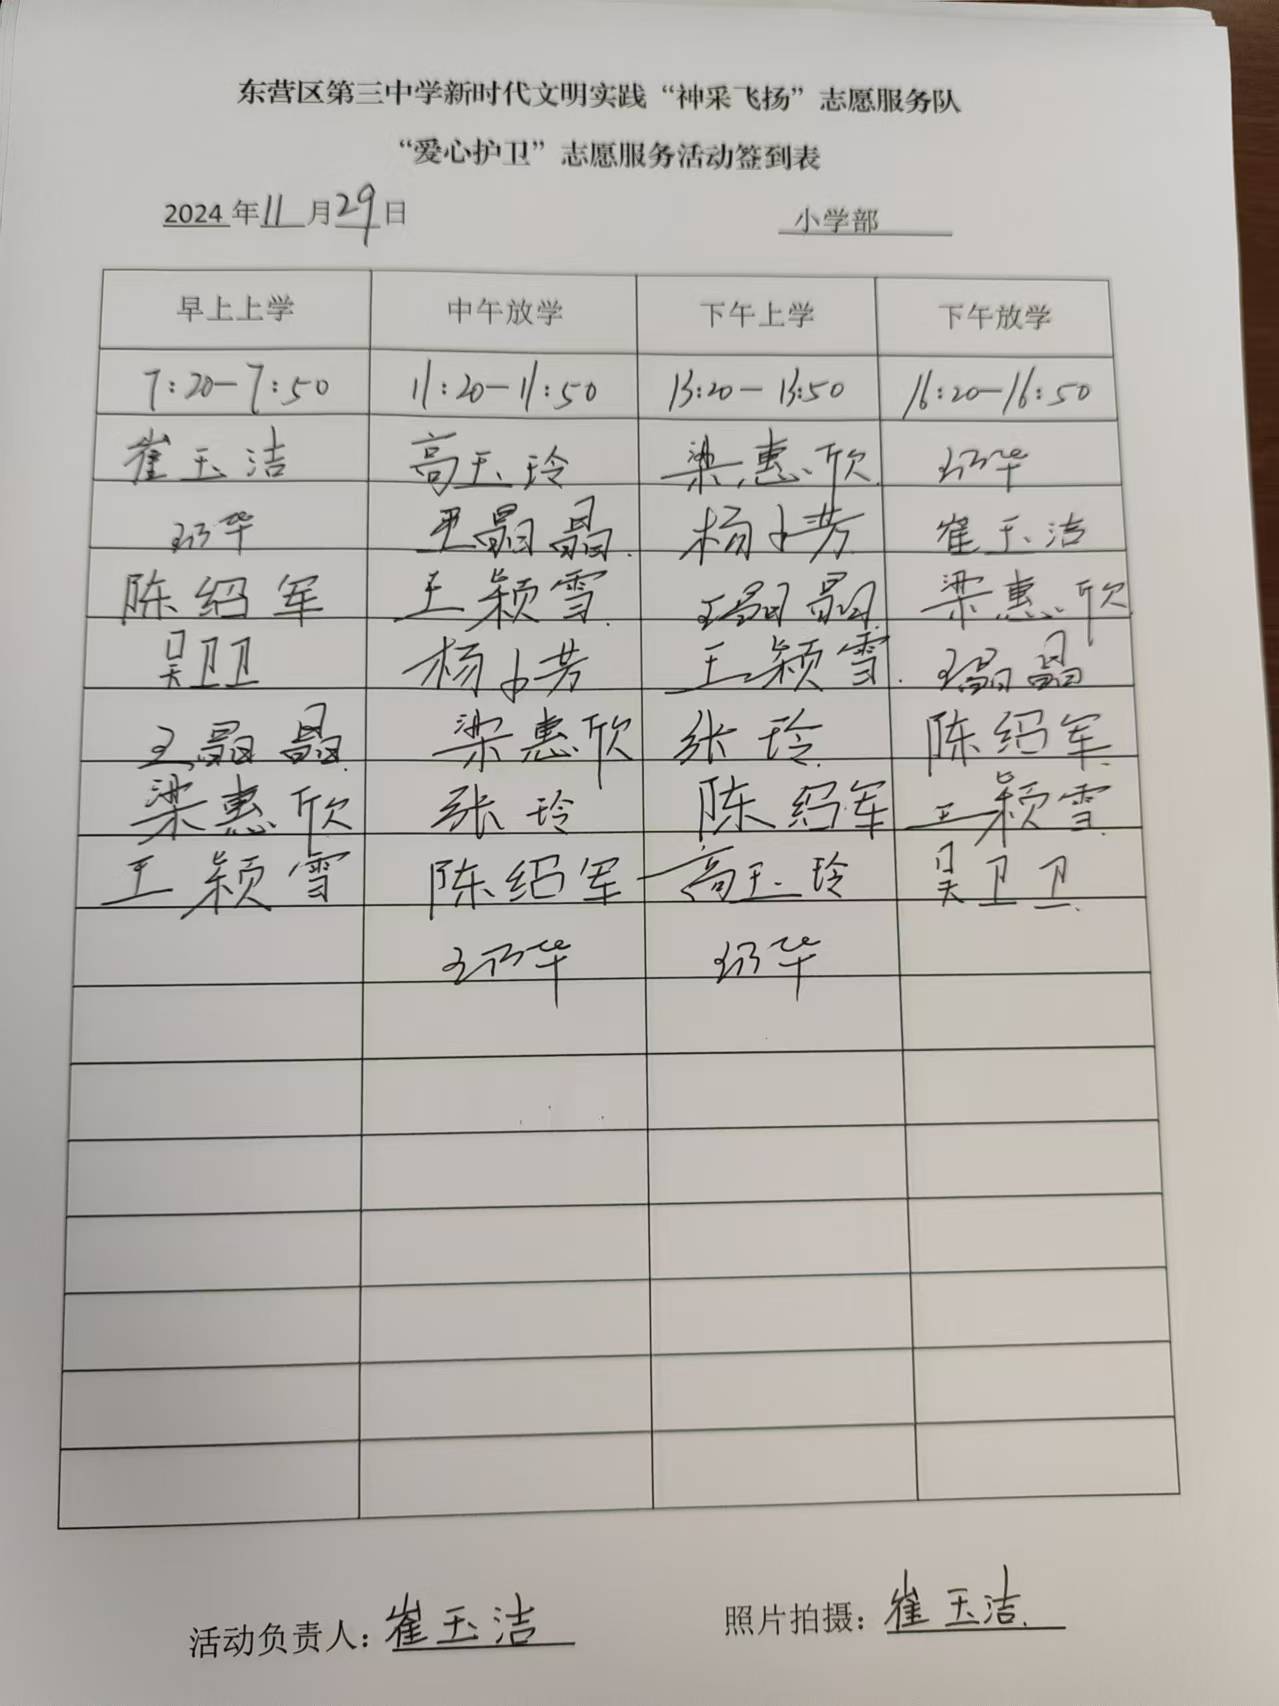 东营区第三中学新时代文明实践“神采飞扬”志愿服务队
“爱心护卫”志愿服务活动签到表
2024年11月29日 小学部
早上上学 中午放学 下午上学 下午放学
7:20-7:50 11:20-11:50 13:20-13:50 16:20-16:50
崔玉洁 高玉玲 梁惠欣 王乃华
王乃华 王晶晶 杨小芳 崔玉洁
陈绍军 王颖雪 王晶晶 梁惠欣
吴卫卫 杨小芳 王颖雪 王晶晶
王晶晶 梁惠欣 张玲 陈绍军
梁惠欣 张玲 陈绍军 王颖雪
王颖雪 陈绍军 高玉玲 吴卫卫
王乃华 王乃华
活动负责人：崔玉洁 照片拍摄：崔玉洁